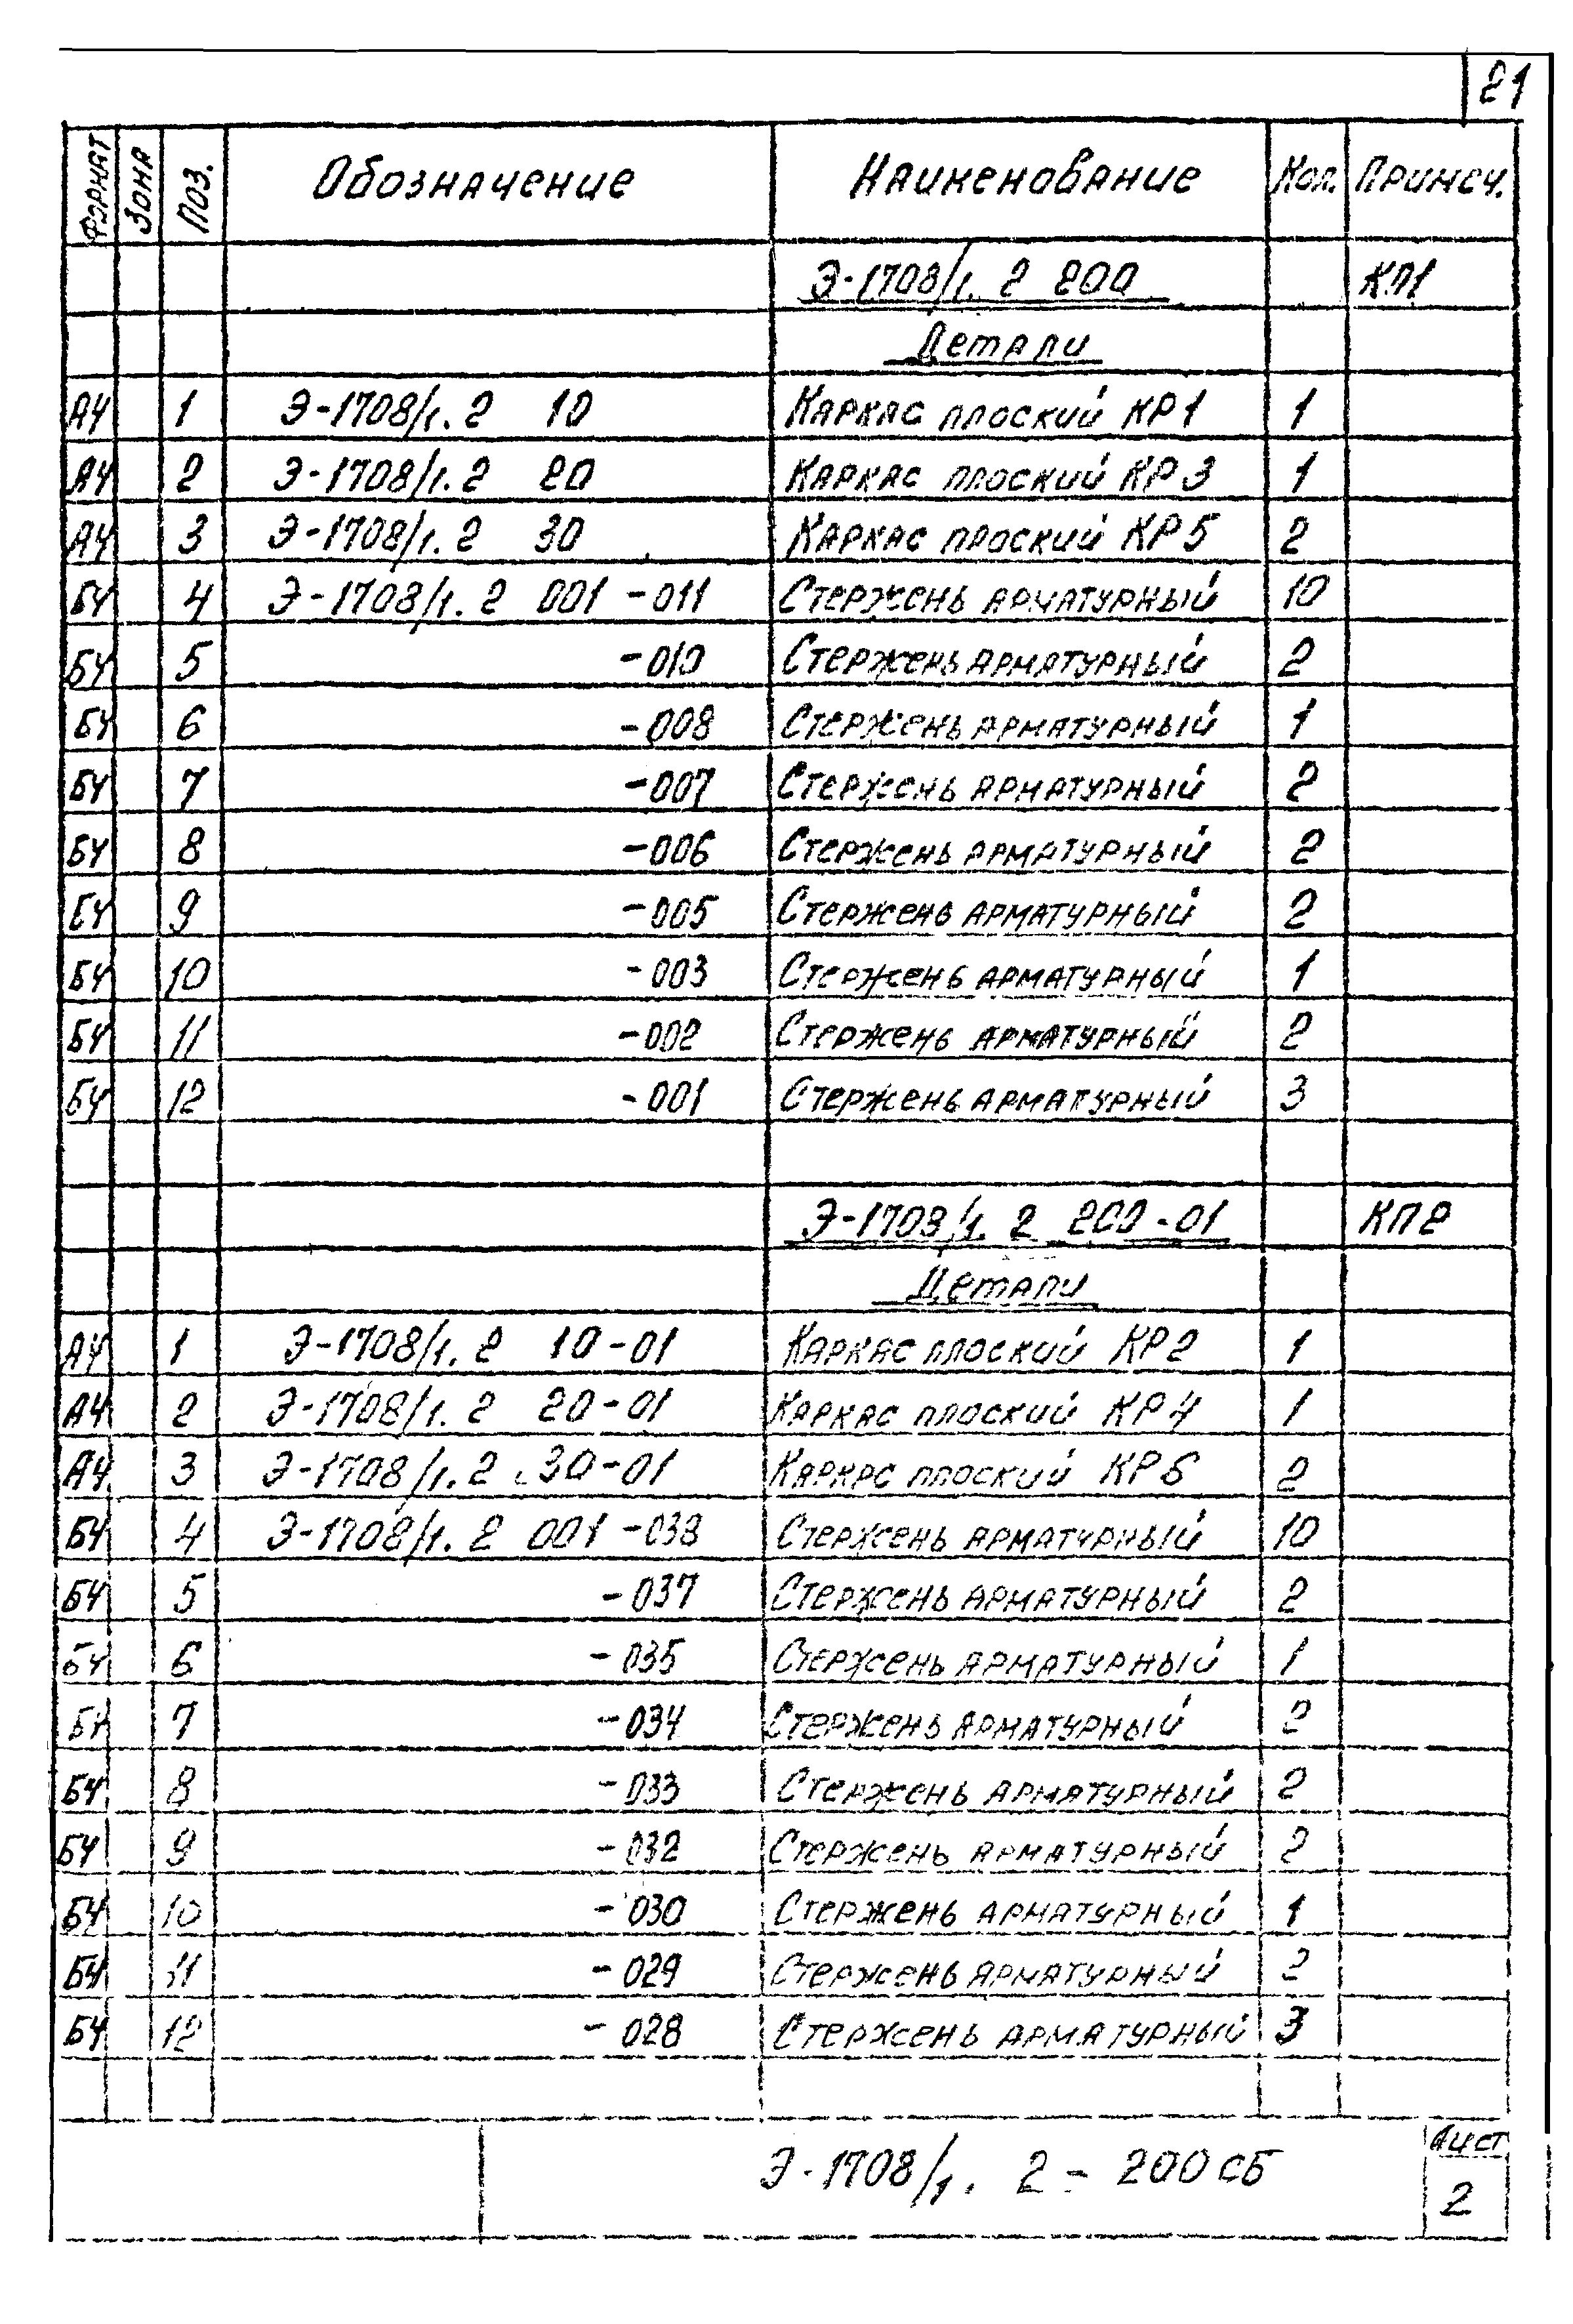 21
Формат Зона Поз. Обозначение Наименование Кол. Примеч.
Э-1708/1. 2 200 КП1
Детали
А4 1 Э-1708/1. 2 10 Каркас плоский КР1 1
А4 2 Э-1708/1. 2 20 Каркас плоский КР3 1
А4 3 Э-1708/1. 2 30 Каркас плоский КР5 2
БЧ 4 Э-1708/1. 2 001 -011 Стержень арматурный 10
БЧ 5 -010 Стержень арматурный 2
БЧ 6 -008 Стержень арматурный 1
БЧ 7 -007 Стержень арматурный 2
БЧ 8 -006 Стержень арматурный 2
БЧ 9 -005 Стержень арматурный 2
БЧ 10 -003 Стержень арматурный 1
БЧ 11 -002 Стержень арматурный 2
БЧ 12 -001 Стержень арматурный 3
Э-1708/1. 2 200-01 КП2
Детали
А4 1 Э-1708/1. 2 10-01 Каркас плоский КР2 1
А4 2 Э-1708/1. 2 20-01 Каркас плоский КР4 1
А4 3 Э-1708/1. 2 30-01 Каркас плоский КР6 2
БЧ 4 Э-1708/1. 2 001 -038 Стержень арматурный 10
БЧ 5 -037 Стержень арматурный 2
БЧ 6 -035 Стержень арматурный 1
БЧ 7 -034 Стержень арматурный 2
БЧ 8 -033 Стержень арматурный 2
БЧ 9 -032 Стержень арматурный 2
БЧ 10 -030 Стержень арматурный 1
БЧ 11 -029 Стержень арматурный 2
БЧ 12 -028 Стержень арматурный 3
Э-1708/1. 2 - 200СБ
Лист
2